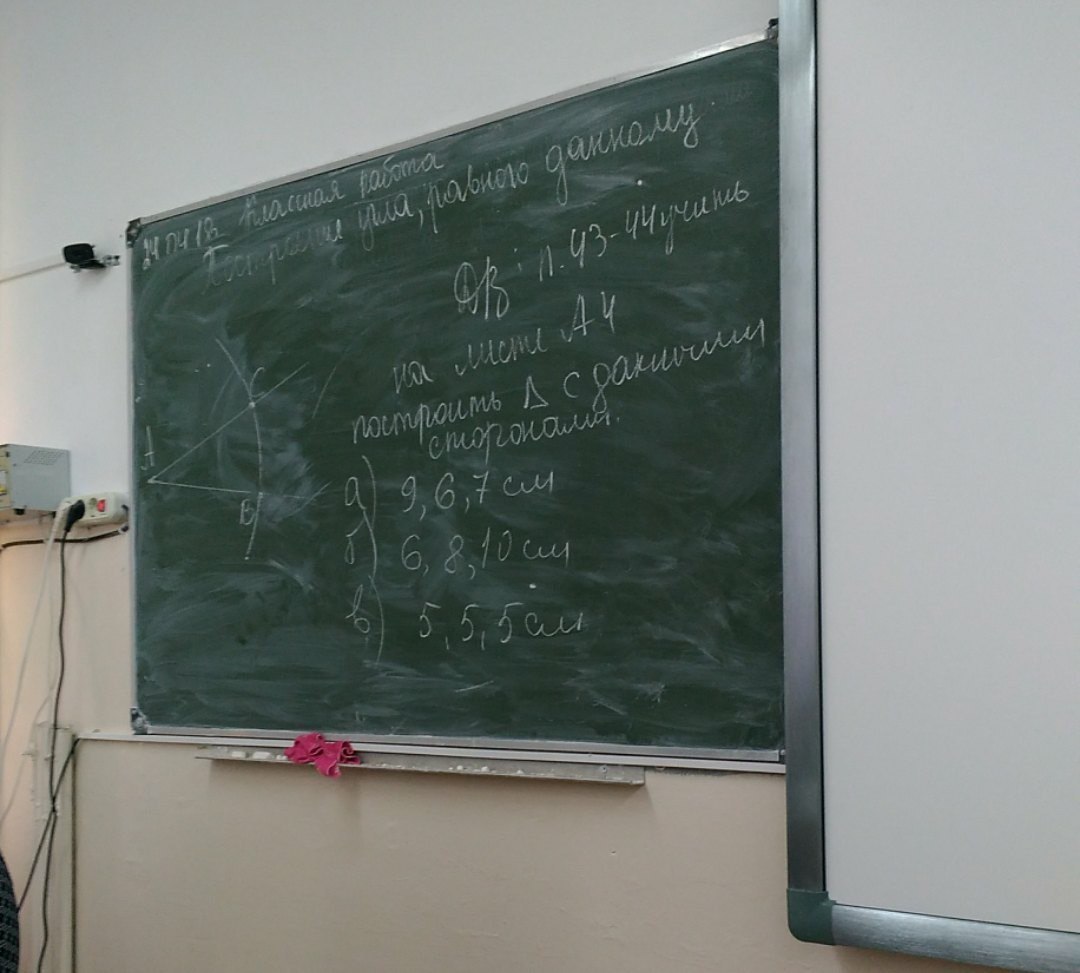 24.04.18. Классная работа
Построение угла, равного данному.
Д/З: п. 43-44 учить
на листе А4
построить Δ с данными
сторонами.
а) 9, 6, 7 см
б) 6, 8, 10 см
в) 5, 5, 5 см
C
A
B